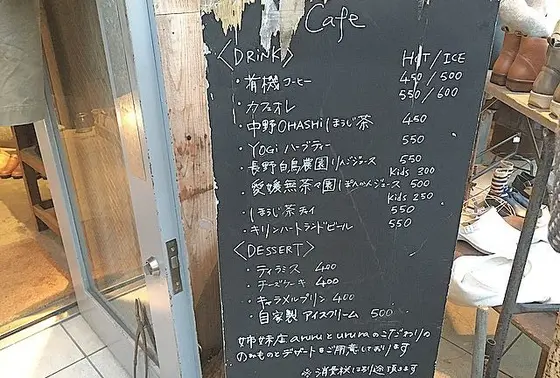 Cafe
〈DRINK〉 HOT / ICE
・有機コーヒー 450 / 500
・カフェオレ 550 / 600
・中野OHASHiほうじ茶 450
・YOGiハーブティー 550
・長野白鳥農園りんごジュース 550
Kids 300
・愛媛無茶々園ぽんかんジュース 500
Kids 250
・ほうじ茶チャイ 550
・キリンハートランドビール 550
〈DESSERT〉
・ティラミス 400
・チーズケーキ 400
・キャラメルプリン 400
・自家製アイスクリーム 500
姉妹店 aruruとururaのこだわりの
のみものとデザートをご用意しております
※消費税は別途頂きます